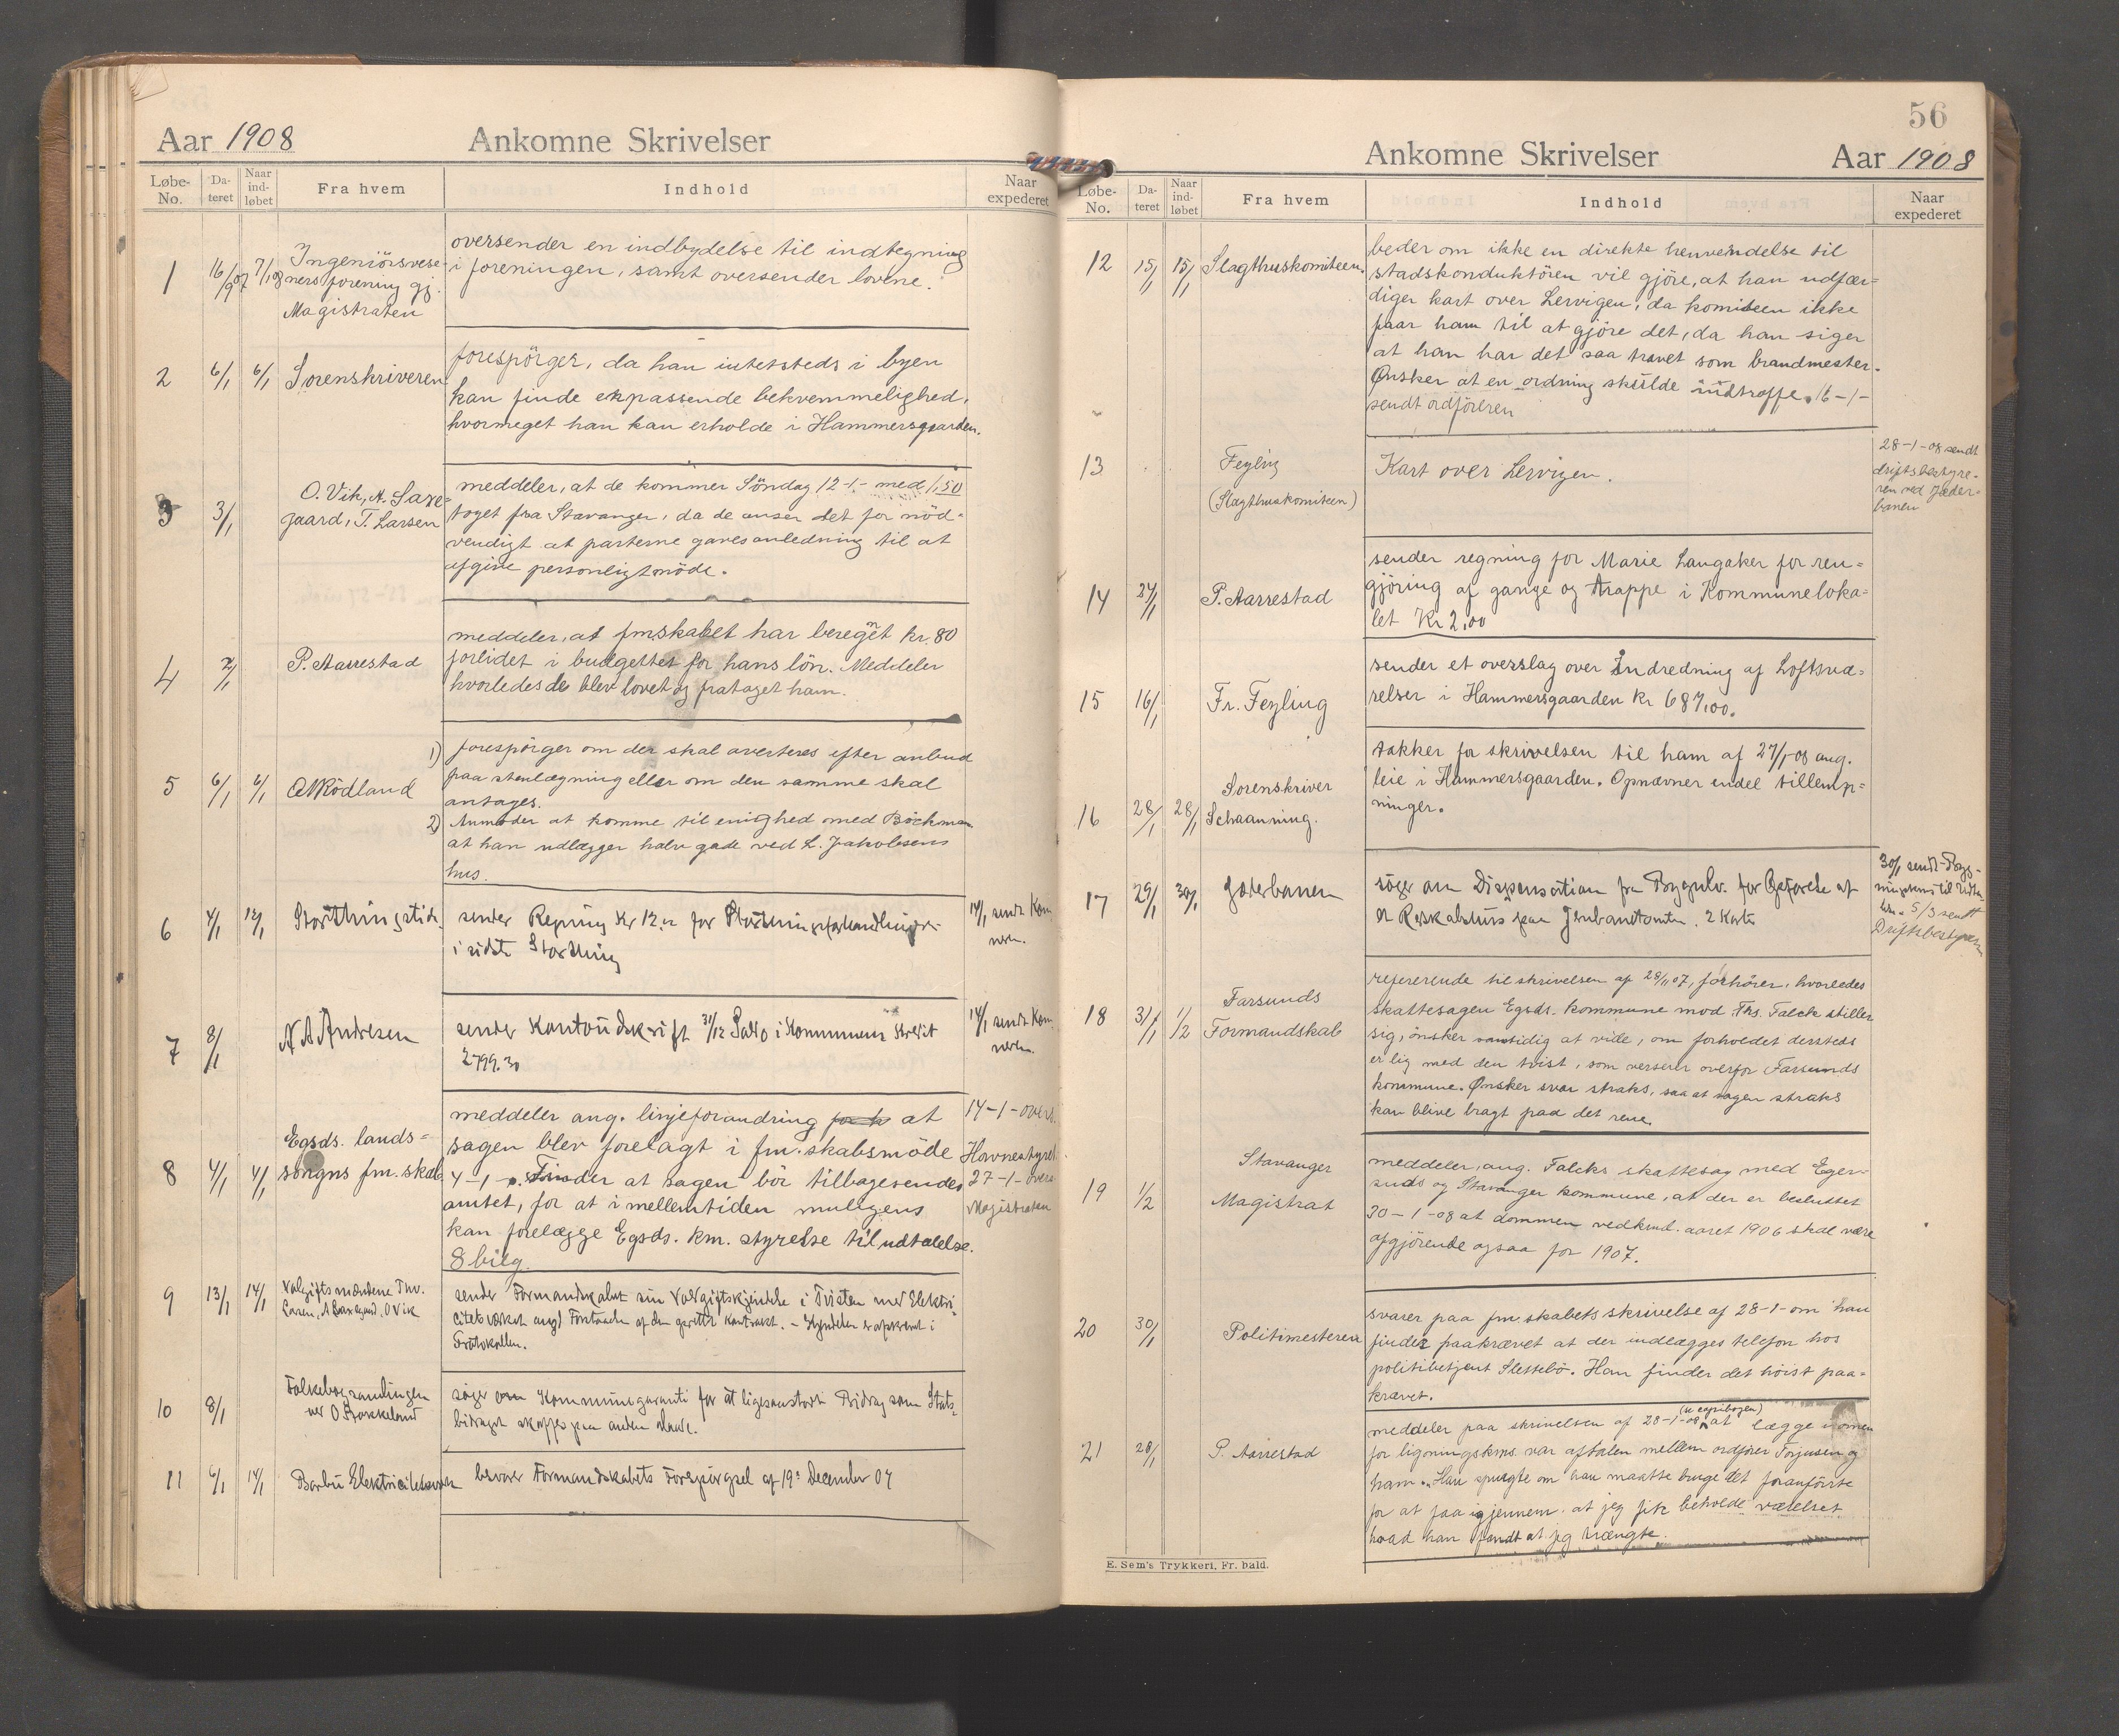 Aar 1908 Ankomne Skrivelser
Løbe-No. Da-teret Naar ind-løbet Fra hvem Indhold Naar expederet
1 16/9 07 7/1 08 Ingeniörsvese-
ners forening gj.
Magistraten
oversender en indbydelse til indtegning
i foreningen, samt oversender lovene.
2 6/1 6/1 Sorenskriveren
forespörger, da han intetsteds i byen
kan finde en passende bekvemmelighed,
hvormeget han kan erholde i Hammersgaarden.
3 3/1 O. Vik, A. Saxe-
gaard, T. Larsen
meddeler, at de kommer Söndag 12-1- med 1,50
toget fra Stavanger, da de anser det for nöd-
vendigt at parterne gaves anledning til at
afgive personligt möde.
4 2/1 P. Aarrestad
meddeler, at fmskabet har beregnet kr. 80
forlidet i budgettet for hans lön. Meddeler
hvorledes de blev lovet og frataget ham.
5 6/1 6/1 A Rödland
1) forespörger om der skal averteres efter anbud
paa stenlægning eller om den samme skal
antages.
2) Anmoder at komme til enighed med Böckman
at han udlægger halv gade ved L. Jakobsens
hus.
6 4/1 12/1 Storthingstid.
sender Regning Kr 12.- for Storthingsforhandlinger
i sidste Storthing
14/1 sendt Kem-
neren.
7 8/1 N A Andresen
sender Kontoudskrift 31/12 Saldo i Kommunens Kredit
2799.30
14/1 sendt Kem-
neren.
8 4/1 4/1 Egsds. lands-
songns fm. skab.
meddeler ang. linjeforandring for h at
sagen blev forelagt i fm. skabsmöde
4-1-. Finder at sagen bör tilbagesendes
amtet, for at i mellemtiden muligens
kan forelægge Egsds. km. styrelse til udtalelse.
8 bilg.
14-1- overs.
Havnestyret
27-1- overs
Magistraten
9 13/1 14/1 Valgiftsmændene Thv.
Larsen, A Saxegaard, O Vik
sender Formandskabet sin Voldgiftskjendelse i Tvisten med Elektri-
citetsværket ang) Forstaaelse af den oprettede Kontrakt. - Kjendelsen er afskrevet i
Protokollen.
10 8/1 Folkebogsamlingen
ved O Stokkeland
söger om Kommunegaranti for at ligesaastort Bidrag som Stats-
bidraget skaffes fra anden Kant.
11 6/1 14/1 Barbu Elektricitetsverk
besvarer Formandskabets Forespörgsel af 19de December 07
56
Ankomne Skrivelser Aar 1908
Løbe-No. Da-teret Naar ind-løbet Fra hvem Indhold Naar expederet
12 15/1 15/1 Slagthuskomiteen.
beder om ikke en direkte henvendelse til
stadskonduktören vil gjöre, at han udfær-
diger kart over Lervigen, da komiteen ikke
faar ham til at gjöre det, da han siger
at han har det saa travet som brandmester.
Ønsker at en ordning skulde indtræffe. 16-1-
sendt ordföreren
13 Feyling
(Slagthuskomiteen)
Kart over Lervigen.
28-1-08 sendt
driftsbestyre-
ren ved Jæder-
banen
14 24/1 P. Aarrestad
sender regning for Marie Langaker for ren-
gjöring af gange og trappe i Kommuneloka-
let Kr 2,00
15 16/1 Fr. Feyling
sender et overslag over Indredning af Loftsvæ-
relser i Hammersgaarden Kr 687,00.
16 28/1 28/1 Sorenskriver
Schaanning.
takker for skrivelsen til ham af 27/1-08 ang.
leie i Hammersgaarden. Opnævner endel tillemp-
ninger.
17 29/1 30/1 Jæderbanen
söger om Dispensation fra Bygnlov. for Opförelse af
et Redskabshus paa Jernbanetomten. 2 Karter
30/1 sendt Byg-
ningskoms til Udta-
lelse. 5/3 sendt
Driftsbestyreren
18 31/1 1/2 Farsunds
Formandskab
refererende til skrivelsen af 28/11 07, forhörer, hvorledes
skattesagen Egsds. kommune mod Ths. Falck stiller
sig, önsker samtidig at vide, om forholdet dersteds
er lig med den tvist, som verserer overfor Farsunds
kommune. Ønsker svar straks, saa at sagen straks
kan blive bragt paa det rene.
19 1/2 Stavanger
Magistrat
meddeler, ang. Falcks skattesag med Eger-
sunds og Stavanger kommune, at der er besluttet
30-1-08 at dommen vedkmd. aaret 1906 skal være
afgjörende ogsaa for 1907.
20 30/1 Politimesteren
svarer paa fm. skabets skrivelse af 28-1- om han
finder paakrævet at der indlægges telefon hos
politibetjent Slettebö. Han finder det höist paa-
krævet.
21 28/1 P. Aarrestad
(se copibogen)
meddeler paa skrivelsen af 28-1-08 at lægge
for ligningskms. var aftalen mellem ordförer Torjusen og
ham. Han spurgte om han maatte bruge det foranförte
for at faa igjennem at jeg fik beholde værelset
hvad han fandt at jeg trængte.
E. Sem's Trykkeri, Fr. hald.